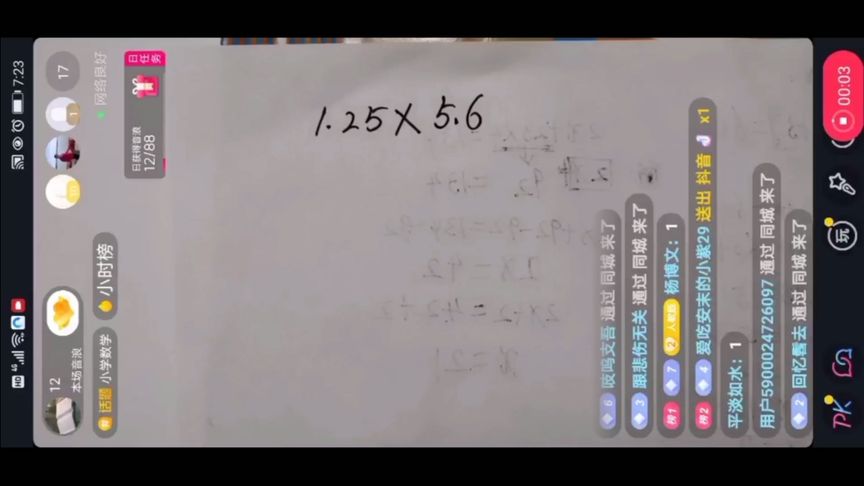 1.25×5.6
7:23
HD 4G
12
本场音浪
17
网络良好
话题 小学数学
小时榜
日任务
日获得音浪
12/88
6 吱吗支吾 通过 同城 来了
3 跟悲伤无关 通过 同城 来了
榜1 7 人教版 杨博文：1
榜2 4 爱吃安末的小紫29 送出 抖音 x1
平淡如水：1
用户5900024726097 通过 同城 来了
2 回忆看去 通过 同城 来了
00:03
玩
PK